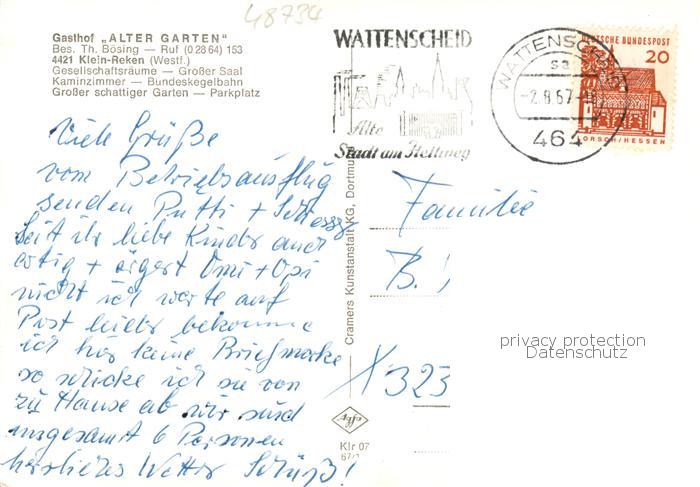 48734
Gasthof „ALTER GARTEN"
Bes. Th. Bösing — Ruf (0 28 64) 153
4421 Klein-Reken (Westf.)
Gesellschaftsräume — Großer Saal
Kaminzimmer — Bundeskegelbahn
Großer schattiger Garten — Parkplatz
WATTENSCHEID
Alte
Stadt am Hellweg
WATTENSCHEID
sa
-2.8.67-
464
DEUTSCHE BUNDESPOST
20
LORSCH/HESSEN
Viele Grüße
vom Betriebsausflug
senden Putti +
Seid ihr liebe Kinder auch
artig + ärgert Omi + Opi
nicht ich warte auf
Post leider bekomme
ich hier keine Briefmarke
so schicke ich sie von
zu Hause ab wir sind
insgesamt 6 Personen
herrliches Wetter Tschüß!
Cramers Kunstanstalt KG, Dortmund
Familie
B.
X 323
Agfa
Klr 07
67/
privacy protection
Datenschutz